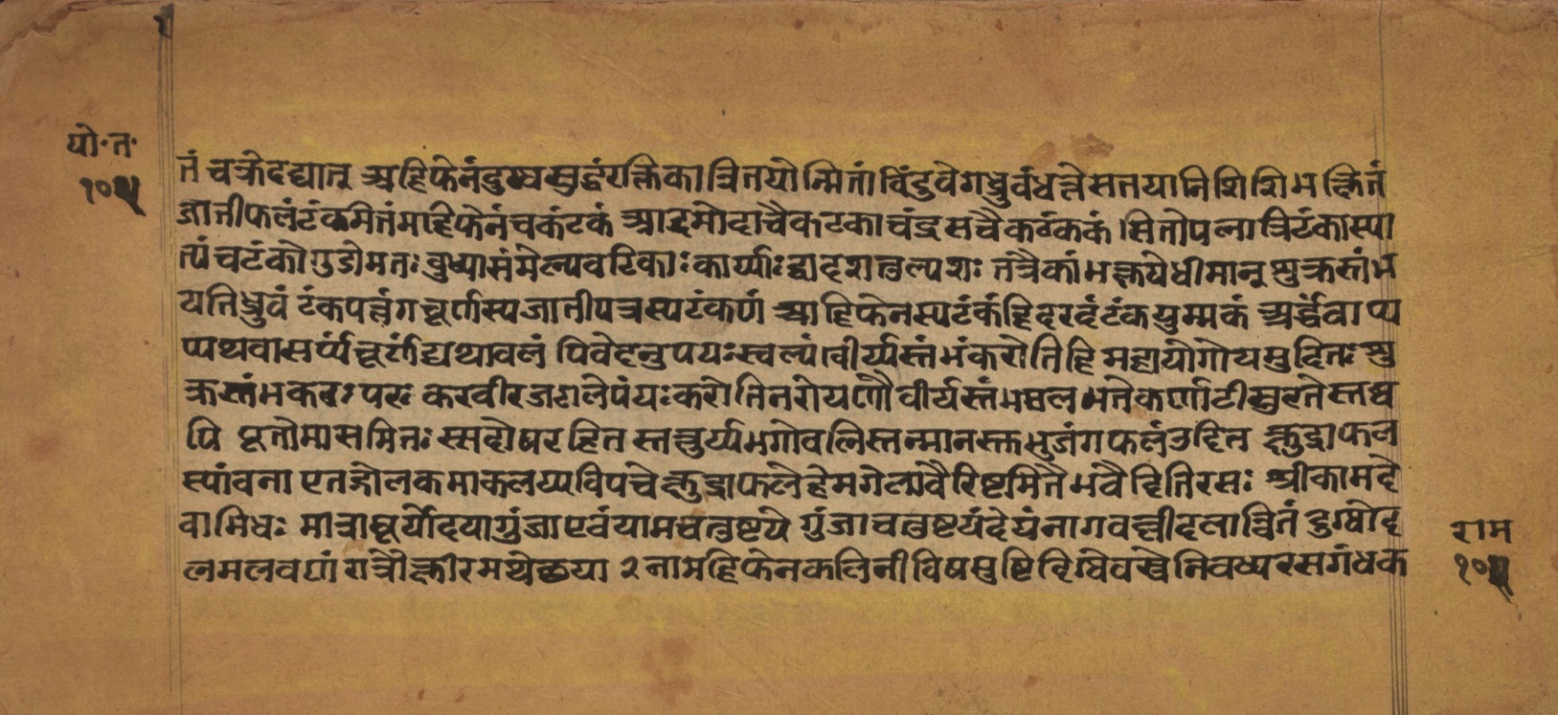 यो॰त॰
तं चक्रेदद्यात् अहिफेनंदुग्धसुद्धंरक्तिकात्रितयोन्मितां विंदुवेगध्रुवंधत्तेसतयानिशिशिभक्षितं
जातीफलंटंकमितंमहिफेनंचकंटकं आदमोदाचैकटकाचंद्रसचैकटंककं सितोपलात्रिटंकास्या
त्यंचटंकौगुडोमतः बुध्यासंमेल्यवटिकाः कार्य्याः द्वादशतुल्यशः तत्रैकांभक्षयेधीमान् शुक्रस्तंभ
यतिध्रुवं टंकपलंगचूर्णस्यजातीपत्रस्यटंकणं आहिफेनस्यटंकंहिदरदंटंकयुग्मकं अर्द्धंवाप्य
प्यथवासर्प्यचूर्णंद्यथावलं पिवेदनुपयःस्वल्पंवीर्य्यस्तंभंकरोतिहि महायोगोयमुदितः शु
क्रस्तंभकरः परः करवीरजटालेपंयःकरोतिनरोयणौ वीर्यस्तंभंसलभतेकर्णाटीसुरतेस्तध
पि सूतौमासमितः स्सदोषरहित स्तत्तुर्य्यभगोवलिस्तन्मानस्तभुजंगफलंउदित क्षुद्राफल
स्यांवना एतद्गोलकमाकलय्यविपचेत्क्षुद्राफलेहेमगेत्यावैरिष्टमितैभवैदितिरसः श्रीकामदे
वाभिधः मात्रासूर्योदयागुंजाएवंयामचतुष्टये गुंजाचतुष्टयंदेयंनागवल्लीदलान्वितं दुग्धोद
लमलवणं रात्रौक्षीरमथेछया २ नामहिफेनकलिनीविषमुष्टिदिग्धेवस्त्रेनिवध्यरसगंधक
राम